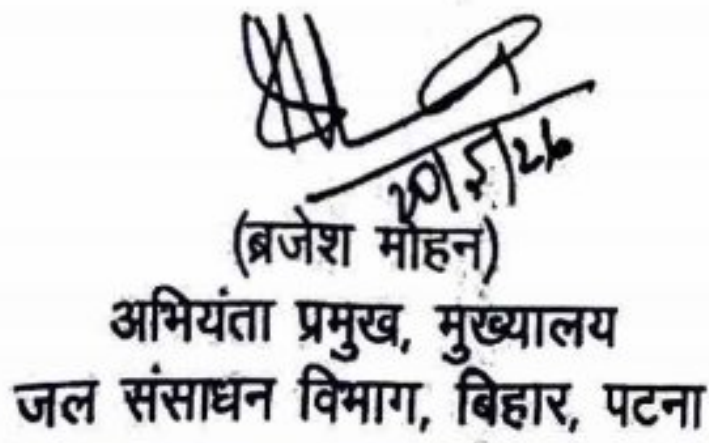 20/5/26
(ब्रजेश मोहन)
अभियंता प्रमुख, मुख्यालय
जल संसाधन विभाग, बिहार, पटना